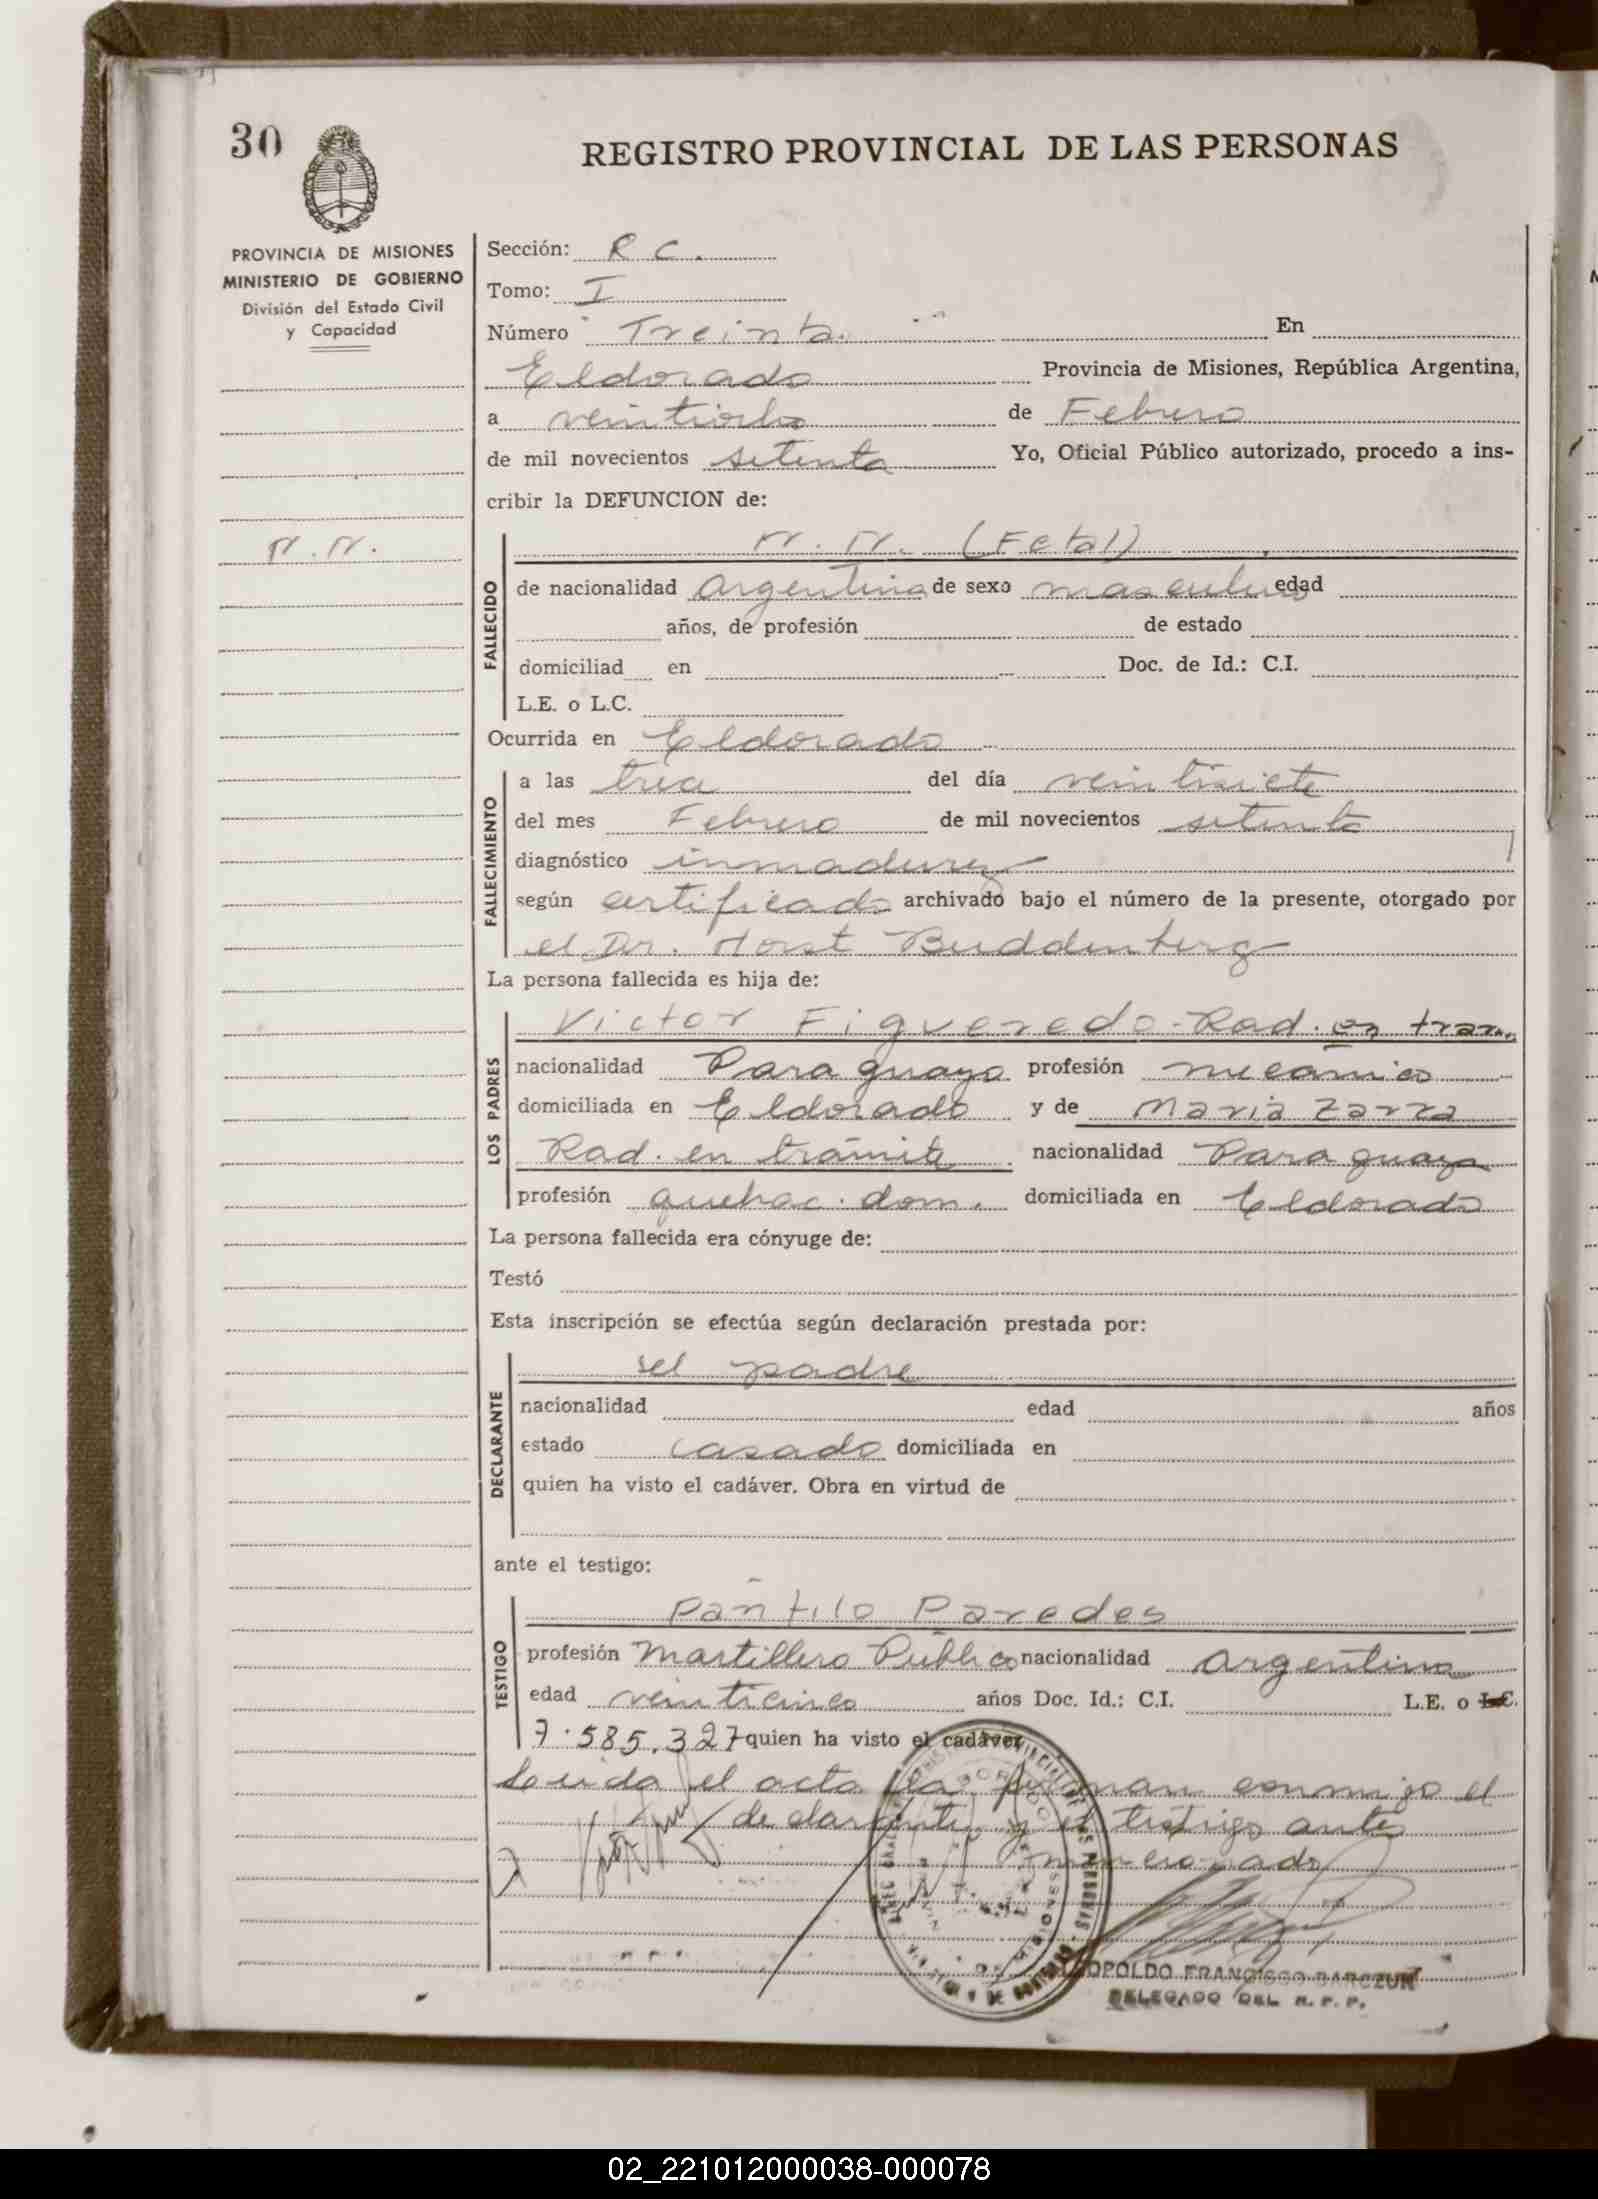 30
REGISTRO PROVINCIAL DE LAS PERSONAS
PROVINCIA DE MISIONES
MINISTERIO DE GOBIERNO
División del Estado Civil
y Capacidad
Sección: R C.
Tomo: I
Número Treinta. En
Eldorado Provincia de Misiones, República Argentina,
a veintiocho de Febrero
de mil novecientos setenta Yo, Oficial Público autorizado, procedo a ins-
cribir la DEFUNCION de:
N.N.
N.N. (Fetal)
FALLECIDO
de nacionalidad argentina de sexo masculino edad
años, de profesión de estado
domiciliad en Doc. de Id.: C.I.
L.E. o L.C.
Ocurrida en Eldorado
FALLECIMIENTO
a las tres del día veintisiete
del mes Febrero de mil novecientos setenta
diagnóstico inmadurez
según certificado archivado bajo el número de la presente, otorgado por
el Dr. Horst Buddenberg
La persona fallecida es hija de:
LOS PADRES
Victor Figueredo - Rad. en tram.
nacionalidad Paraguaya profesión mecánico
domiciliada en Eldorado y de Maria Zarza
Rad. en trámite nacionalidad Paraguaya
profesión quehac. dom. domiciliada en Eldorado
La persona fallecida era cónyuge de:
Testó
Esta inscripción se efectúa según declaración prestada por:
DECLARANTE
el padre
nacionalidad edad años
estado casado domiciliada en
quien ha visto el cadáver. Obra en virtud de
ante el testigo:
TESTIGO
Paredes
profesión Martillero Público nacionalidad argentina
edad veinticinco años Doc. Id.: C.I. L.E. o L.C.
7.585.327 quien ha visto el cadáver
Leida el acta la firman conmigo el
declarante y el testigo ante
mencionado
LEOPOLDO FRANCISCO BARCZUK
DELEGADO DEL R. P. P.
02_221012000038-000078